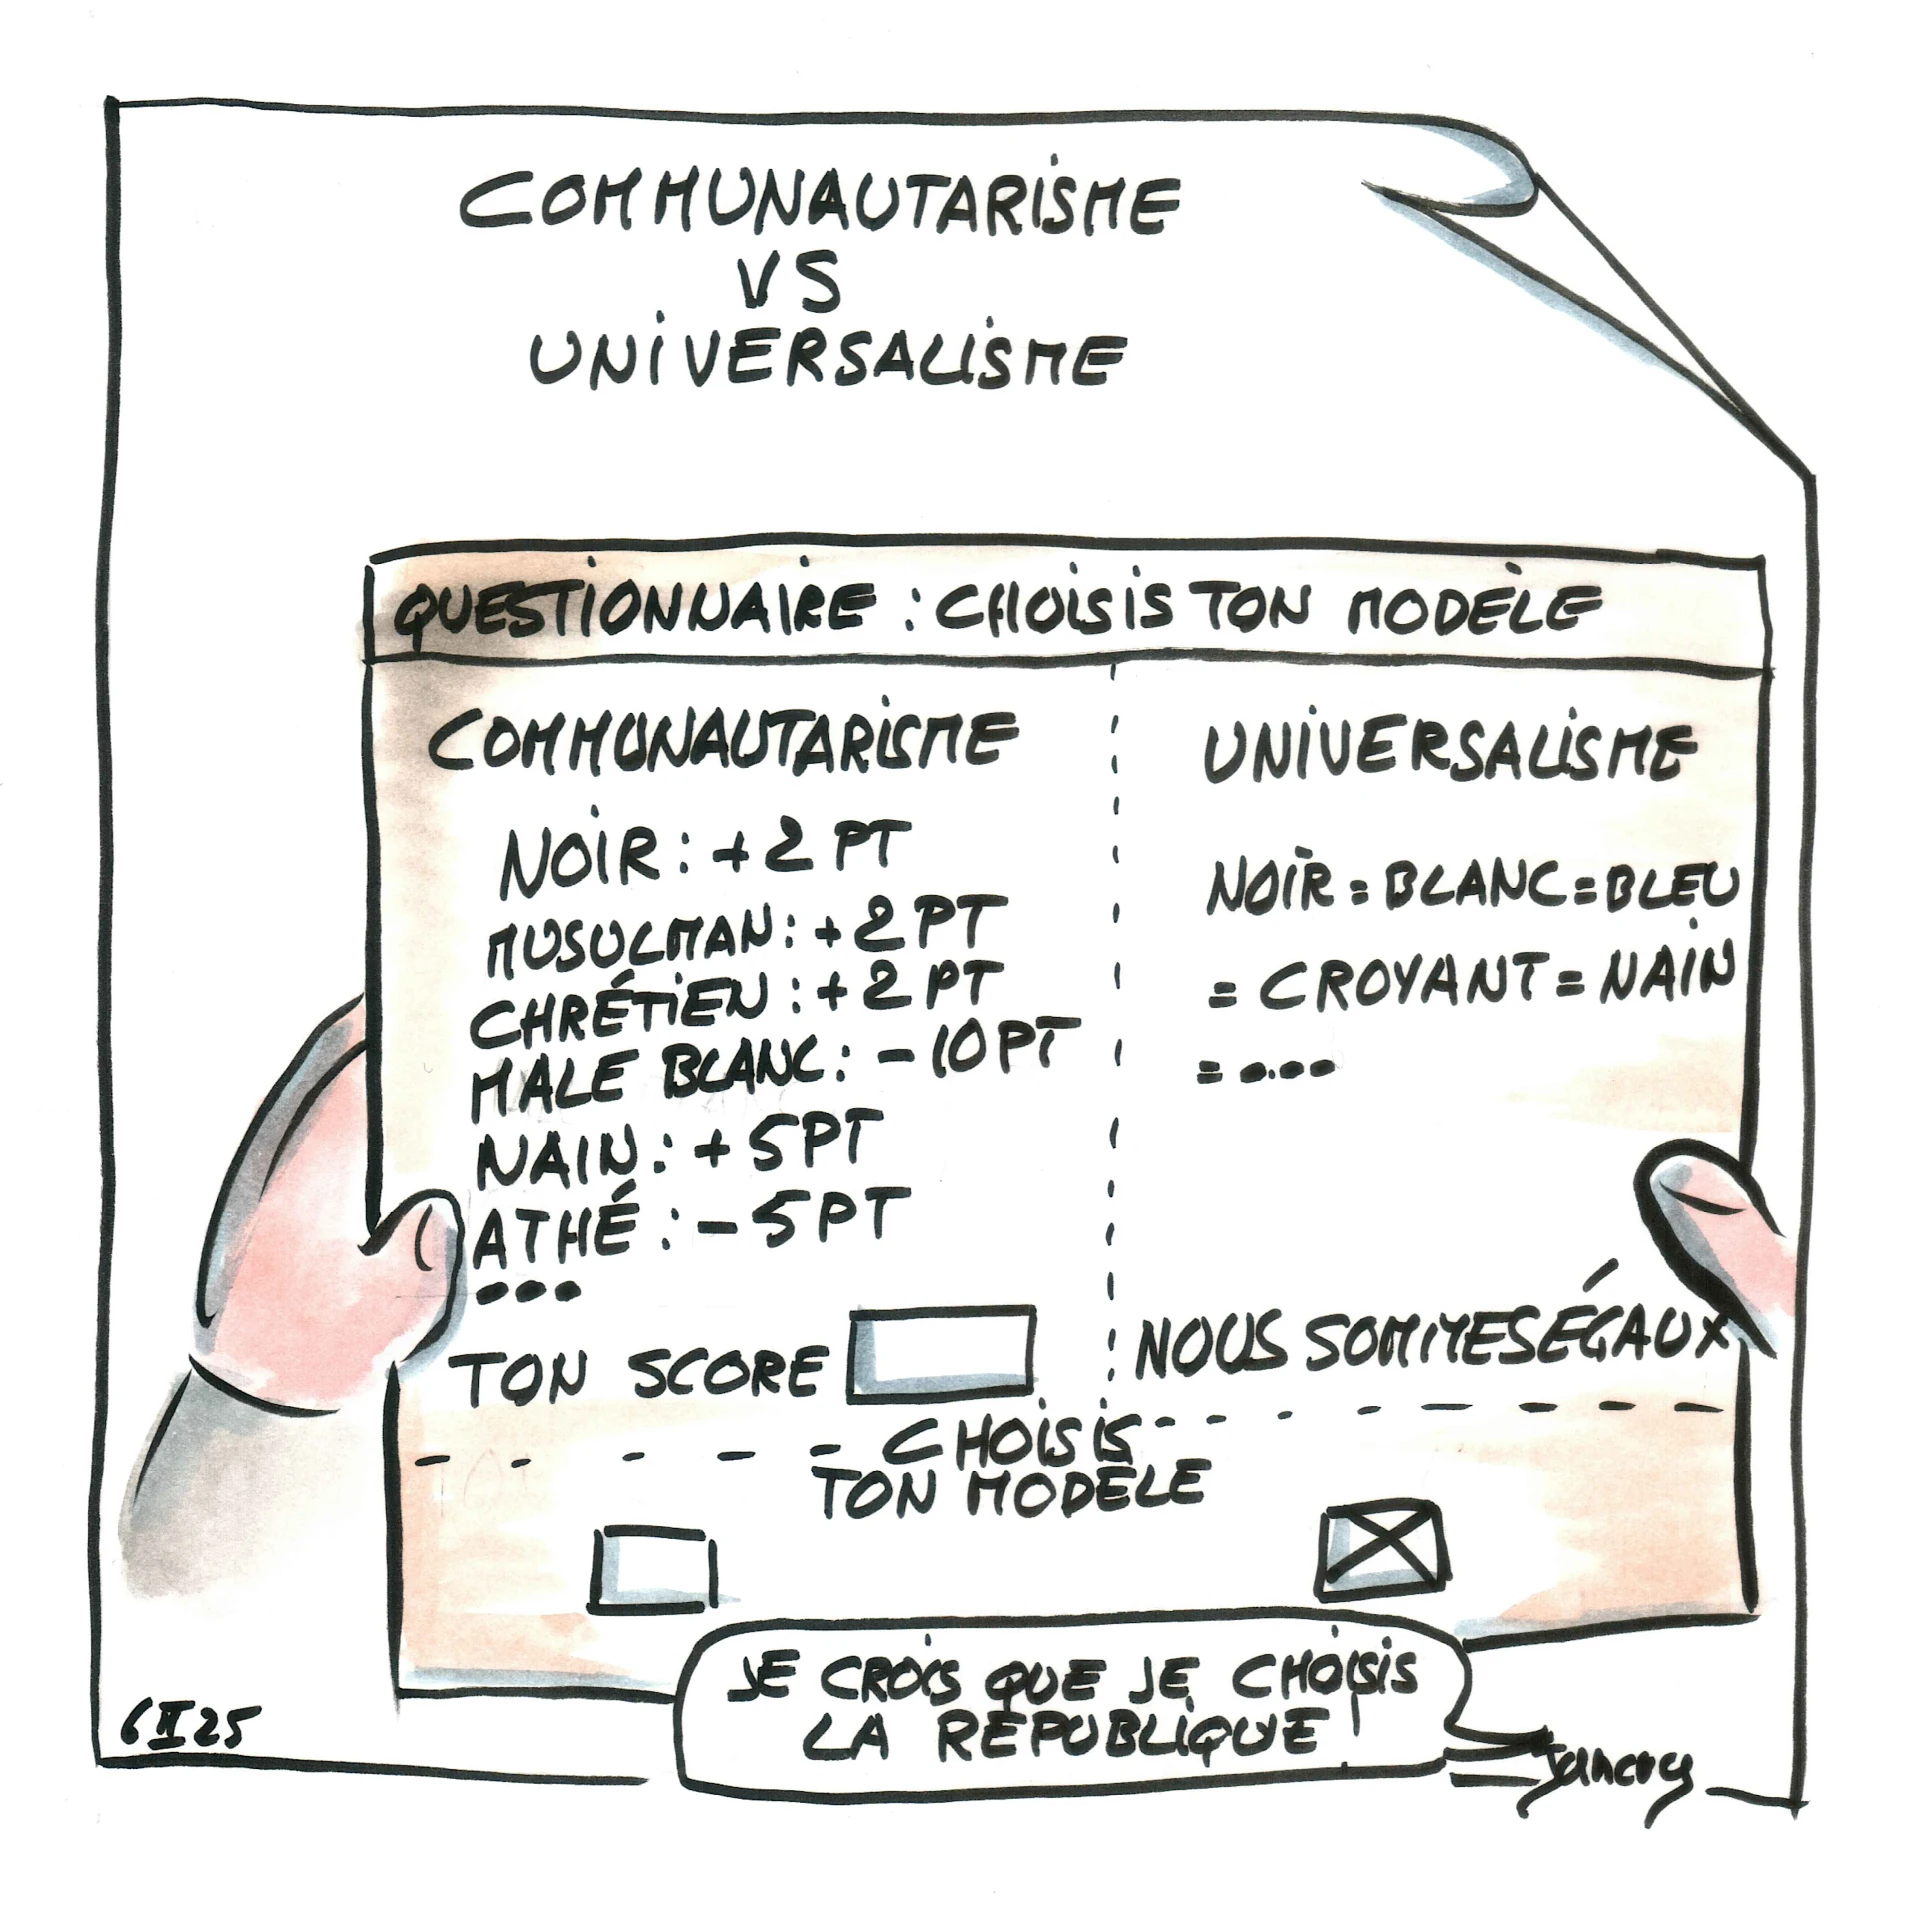 COMMUNAUTARISME
VS
UNIVERSALISME
QUESTIONNAIRE : CHOISIS TON MODÈLE
COMMUNAUTARISME
NOIR : +2 PT
MUSULMAN : +2 PT
CHRÉTIEN : +2 PT
MALE BLANC : -10 PT
NAIN : +5 PT
ATHÉ : -5 PT
...
TON SCORE
UNIVERSALISME
NOIR = BLANC = BLEU
= CROYANT = NAIN
= ....
NOUS SOMMES ÉGAUX
CHOISIS
TON MODÈLE
JE CROIS QUE JE CHOISIS
LA RÉPUBLIQUE !
6 II 25